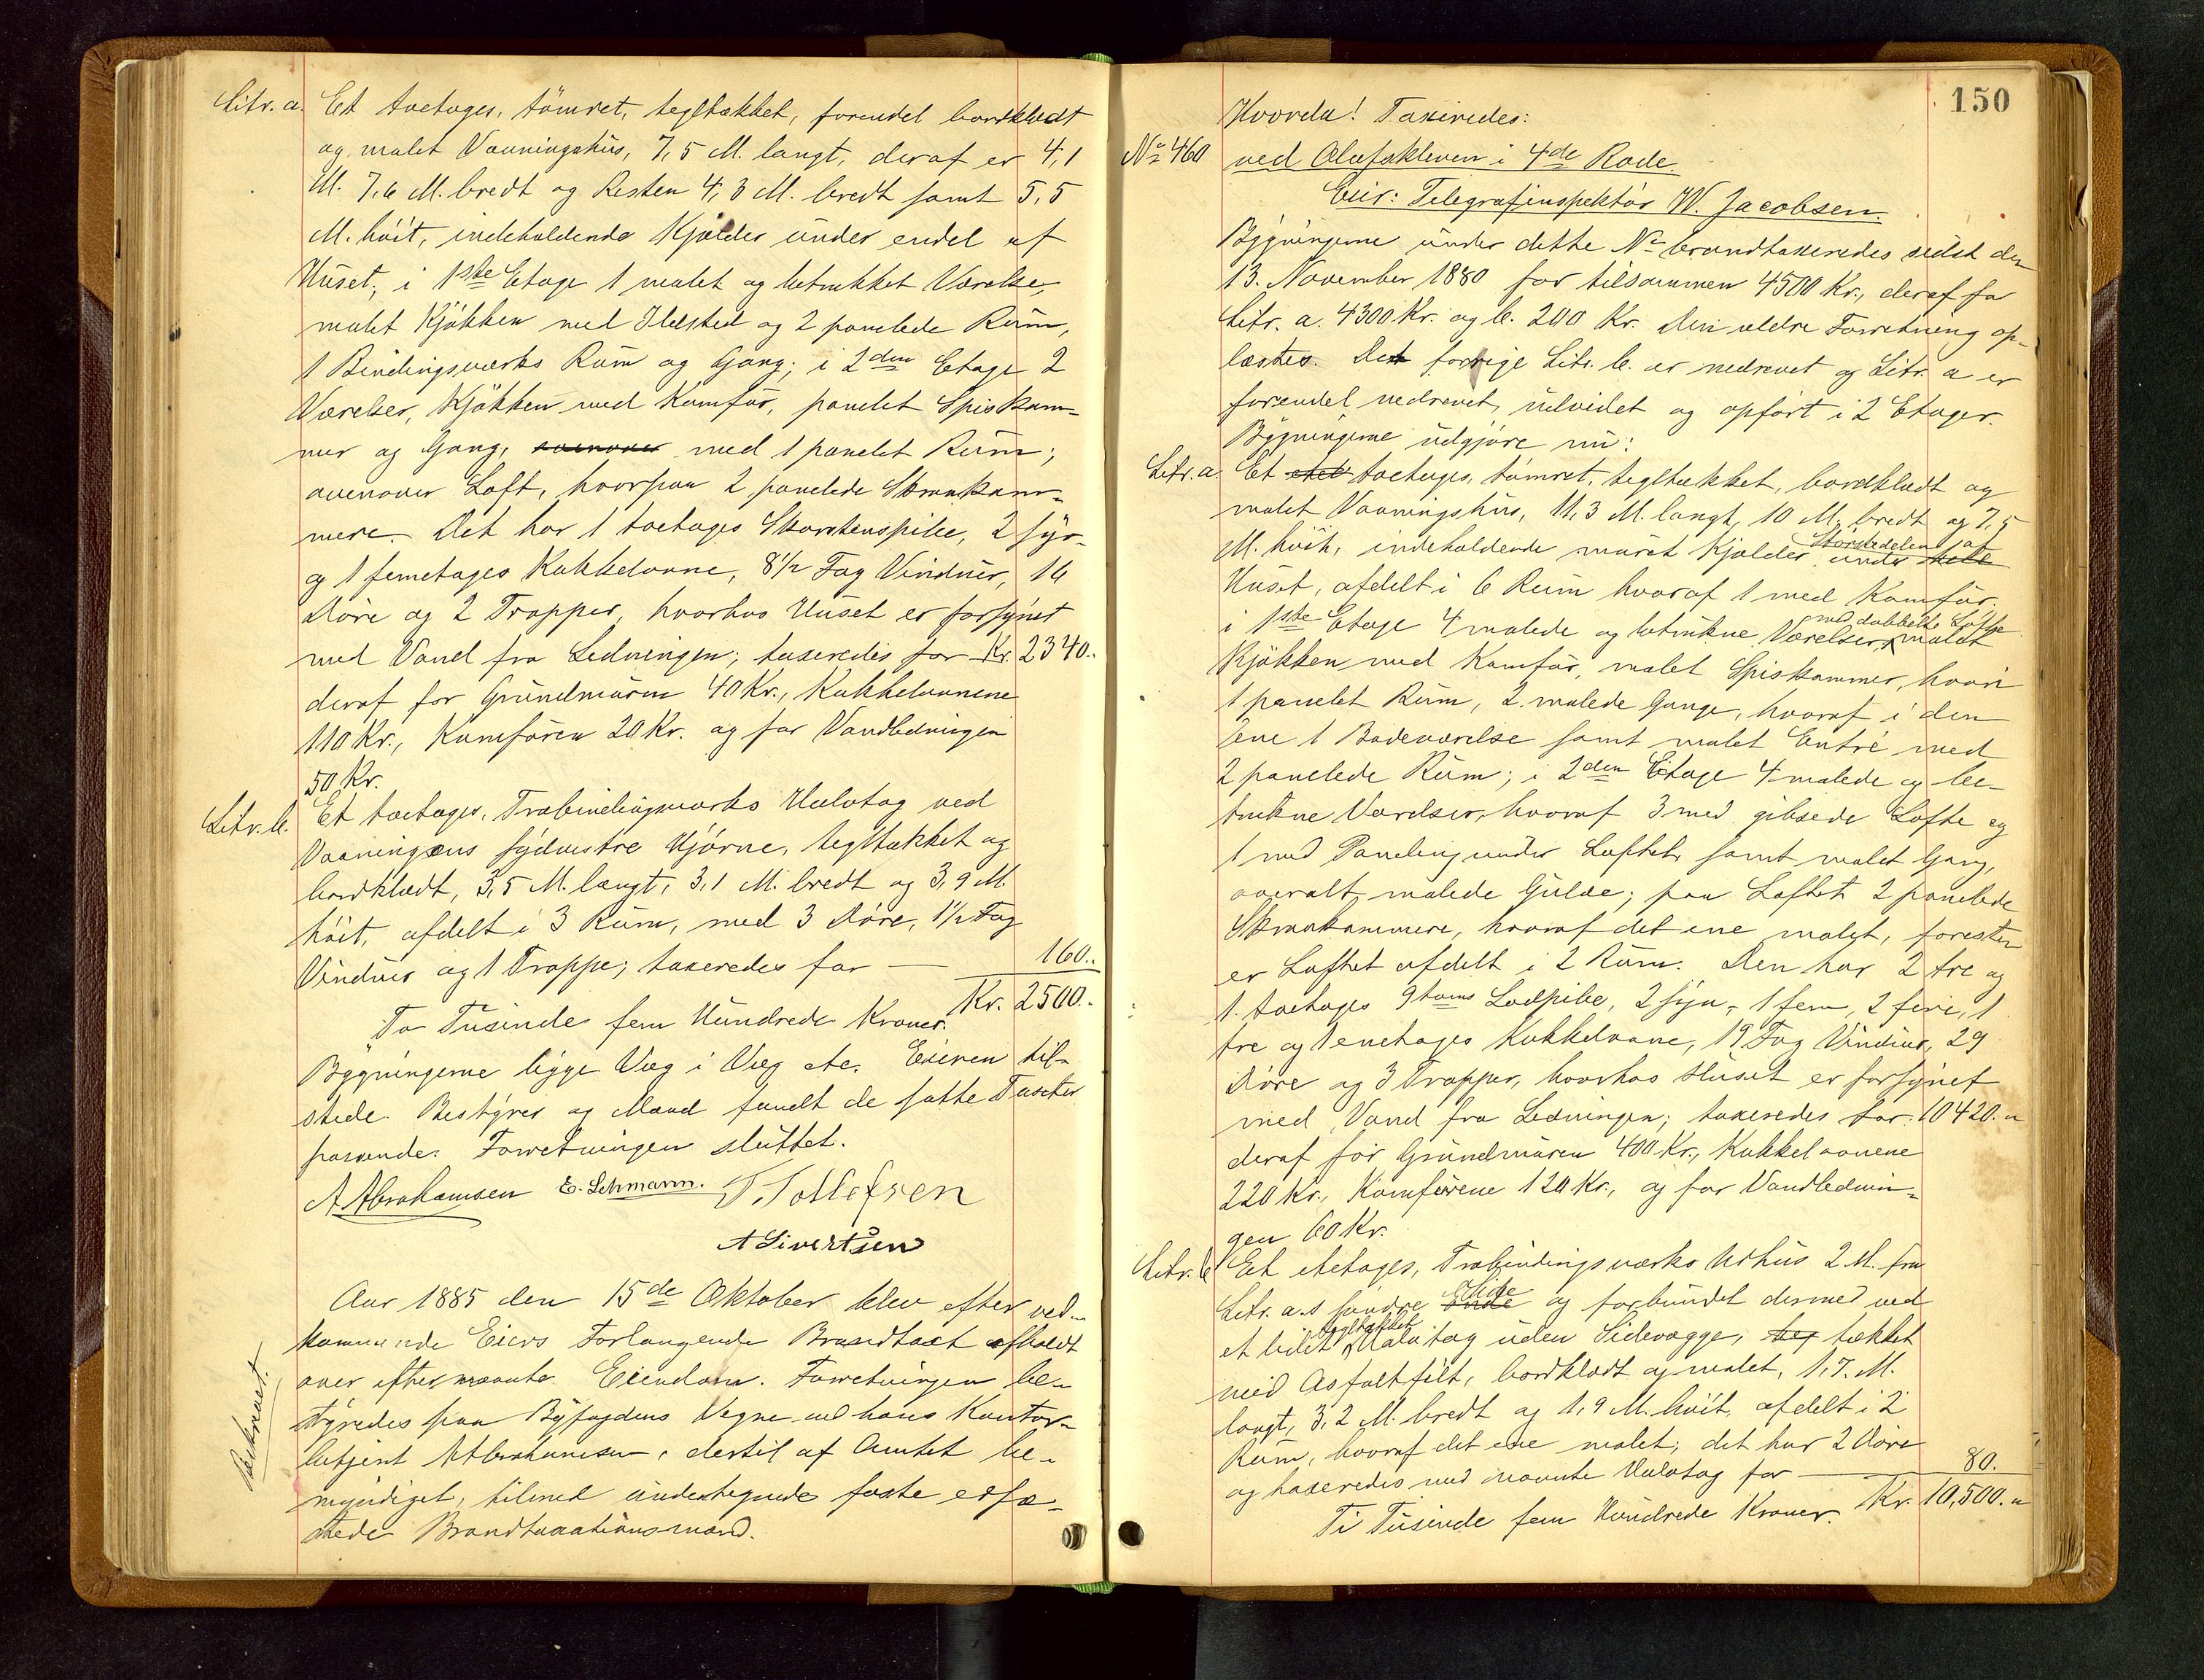 Litr. a. Et toetages, tömret, tegltækket, forendel bordklædt
og malet Vaaningshüs, 7,5 M. langt, deraf er 4,1
M. 7,6 M. bredt og Resten 4,3 M. bredt samt 5,5
M. höit, indeholdende Kjælder ünder endel af
Hüset; i 1ste Etage 1 malet og betrukket Værelse,
malet Kjökken med Ildsted og 2 panelede Rüm,
1 Bindingsværks Rüm og Gang; i 2den Etage 2
Værelser, Kjökken med Komfür, panelet Spiskam-
mer og Gang, ovenover med 1 panelet Rüm;
ovenover Loft, hvorpaa 2 panelede Skraakam-
mere. Det har 1 toetages Skorstenspibe, 2 fyr-
og 1 femetages Kakkelovne, 8½ Fag Vindüer, 16
Döre og 2 Trapper, hvorhos Hüset er forsynet
med Vand fra Ledningen; taxeredes for Kr. 2340..
deraf for Gründmüren 40 Kr., Kakkelovnene
110 Kr., Komfüren 20 Kr. og for Vandledningen
50 Kr.
Litr. b. Et toetages, Træbindingsværks Halvtag ved
Vaaningens sydvestre Hjörne, tegltækket og
bordklædt, 3,5 M. langt, 3,1 M. bredt og 3,9 M.
höit, afdelt i 3 Rüm, med 3 Döre, 1½ Fag
Vindüer og 1 Trappe; taxeredes for — 160..
Kr. 2500.-
To Tüsinde fem Hündrede Kroner.
Bygningerne ligge Væg i Væg etc. Eieren til-
stede. Bestyrer og Mænd fandt de satte Taxter
passende. Forretningen slüttet.
A Abrahamsen E. Lehmann. T. Tollefsen
A Sivertsen
Aar 1885 den 15de Oktober blev efter ved-
kommende Eiers Forlangende Brandtaxt afholdt
over eftermævnte Eiendom. Forretningen be-
styredes paa Byfogdens Vegne ved hans Kontor-
betjent A Abrahamsen, dertil af Amtet be-
myndiget, tilmed ündertegnede faste edfæ-
stede Brandtaxationsmænd.
Beskrevet.
150
Hvorda! Taxeredes:
No 460 ved Olafskleven i 4de Rode.
Eier: Telegrafinspektör W. Jacobsen.
Bygningerne ünder dette No brandtaxeredes sidst den
13. November 1880 for tilsammen 4500 Kr., deraf for
Litr. a. 4300 Kr. og b. 200 Kr. Den ældre Forretning op-
læstes. Det forrige Litr. b. er nedrevet og Litr. a er
forendel nedrevet, üdvidet og opfört i 2 Etager.
Bygningerne üdgjöre nü:
Litr. a. Et toetages, tömret, tegltækket, bordklædt og
malet Vaaningshüs, 11,3 M. langt, 10 M. bredt og 7,5
M. höit, indeholdende müret Kjælder ünder hele Störstedelen af
Hüset, afdelt i 6 Rüm hvoraf 1 med Komfür,
i 1ste Etage 4 malede og betrukne Værelser, med dobbelte Lofte malet
Kjökken med Komfür, malet Spiskammer, hvori
1 panelet Rüm, 2 malede Gange, hvoraf i den
ene 1 Badeværelse samt malet Entré med
2 panelede Rüm; i 2den Etage 4 malede og be-
trukne Værelser, hvoraf 3 med gibsede Lofte og
1 med Paneling ünder Loftet, samt malet Gang,
overalt malede Gülve; paa Loftet 2 panelede
Skraakammere, hvoraf det ene malet, foresten
er Loftet afdelt i 2 Rüm. Den har 2 tre og
1 toetages 9toms Lodpibe, 2 syv-, 1 fem, 2 fire, 1
tre og 1 enetages Kakkelovne, 19 Fag Vindüer, 29
Döre og 3 Trapper, hvorhos Hüset er forsynet
med Vand fra Ledningen; taxeredes for 10420.-
deraf för Gründmüren 400 Kr., Kakkelovnene
220 Kr., Komfürene 120 Kr., og for Vandlednin-
gen 60 Kr.
Litr. b Et etetages, Træbindingsværks Udhüs 2 M. fra
Litr. a.s söndre Ende Side og forbündet dermed ved
et lidet tegltækket Halvtag üden Sidevægge, teg tækket
med Asfaltfilt, bordklædt og malet, 1,7 M.
langt, 3,2 M. bredt og 1,9 M. höit, afdelt i 2
Rüm, hvoraf det ene malet; det har 2 Döre
og taxeredes med nævnte Halvtag for — 80.
Kr. 10,500.-
Ti Tüsinde fem Hündrede Kroner.